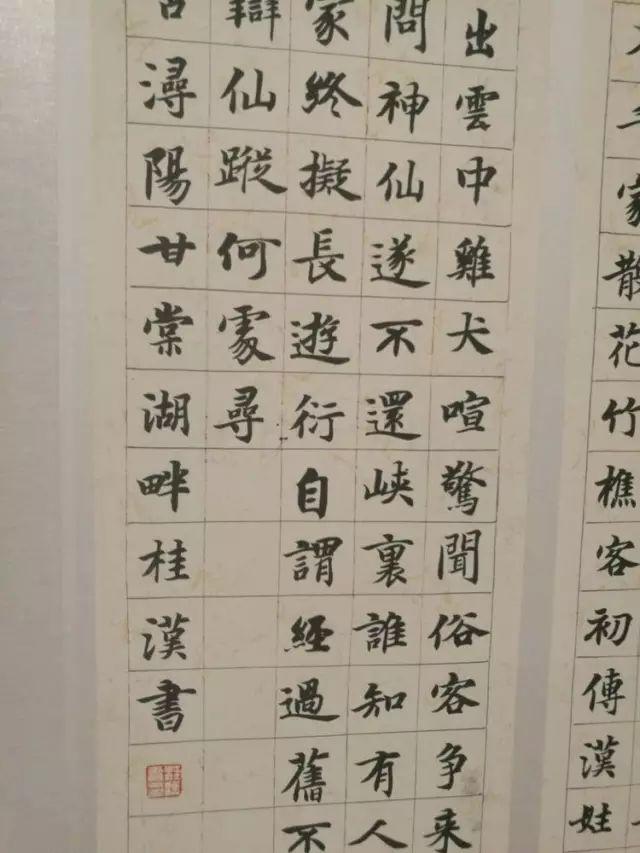 家散花竹樵客初傳漢姓
出雲中雞犬喧驚聞俗客争来
問神仙遂不還峽裏誰知有人
家終擬長遊衍自謂經過舊不
辯仙蹤何處尋
潯陽甘棠湖畔桂漢書